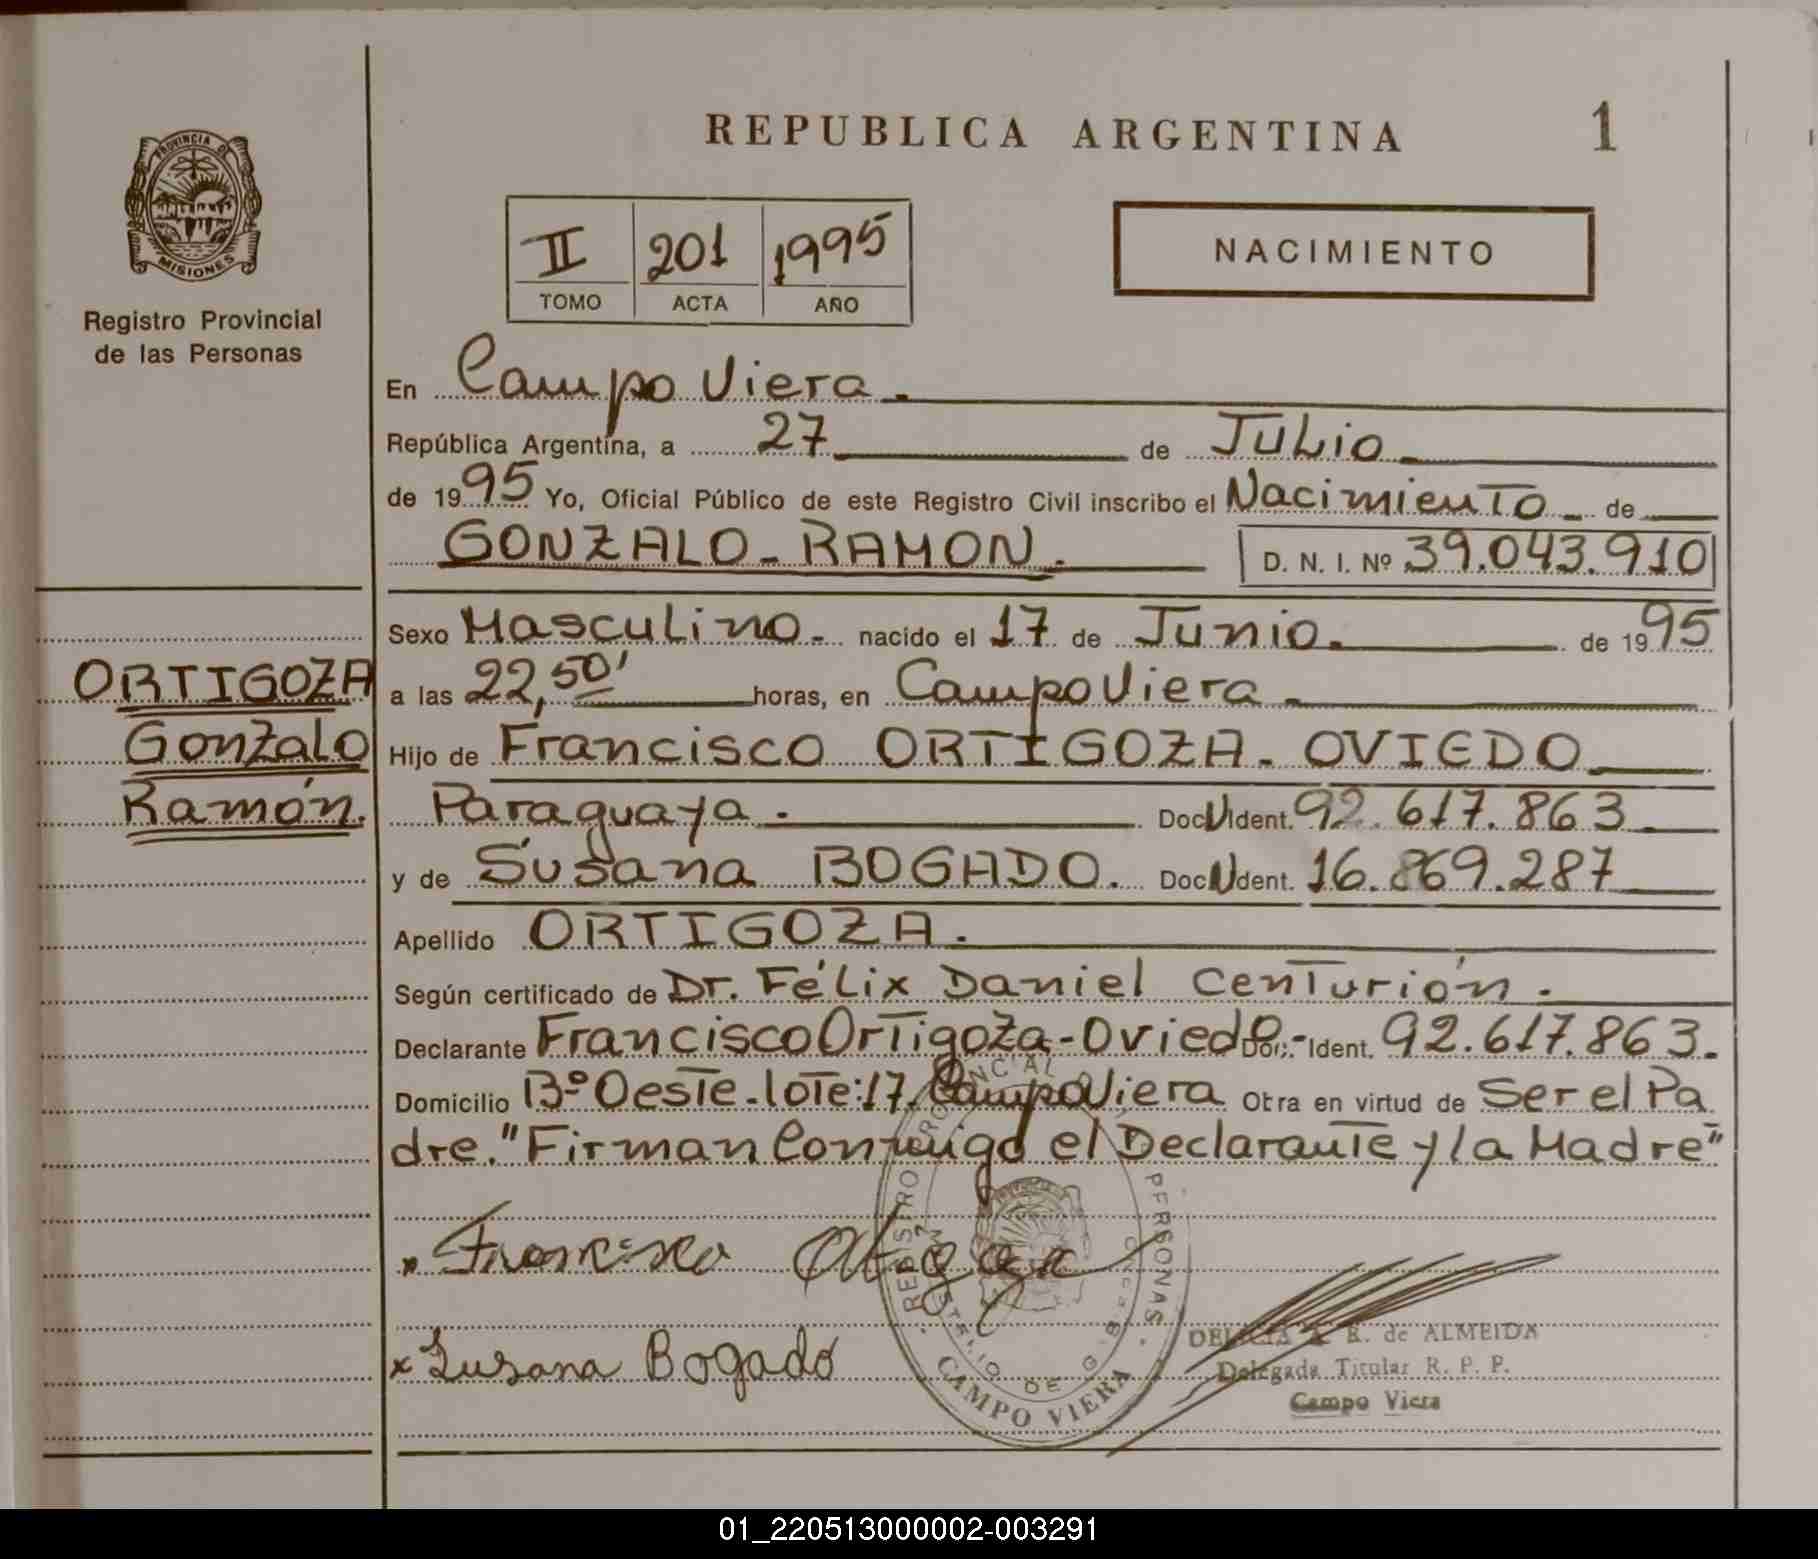 REPUBLICA ARGENTINA
1
PROVINCIA DE
MISIONES
Registro Provincial
de las Personas
II 201 1995
TOMO ACTA AÑO
NACIMIENTO
En Campo Viera.
República Argentina, a 27 de Julio
de 1995 Yo, Oficial Público de este Registro Civil inscribo el Nacimiento de
GONZALO-RAMON. D. N. I. Nº 39.043.910
Sexo Masculino. nacido el 17 de Junio. de 1995
a las 22,50' horas, en Campo Viera
Hijo de Francisco ORTIGOZA-OVIEDO
Paraguaya. Doc. N Ident. 92.617.863
y de Susana BOGADO. Doc. N Ident. 16.869.287
Apellido ORTIGOZA.
Según certificado de Dr. Félix Daniel Centurión.
Declarante Francisco Ortigoza-Oviedo Doc. Ident. 92.617.863.
Domicilio Bº Oeste-lote:17, Campo Viera Obra en virtud de Ser el Pa
dre. "Firman Conmigo el Declarante y la Madre"
ORTIGOZA
Gonzalo
Ramón.
x Francisco Ortigoza
x Susana Bogado
REGISTRO PROVINCIAL PERSONAS
CAMPO VIERA
R. de ALMEIDA
Delegada Titular R. P. P.
Campo Viera
01_220513000002-003291